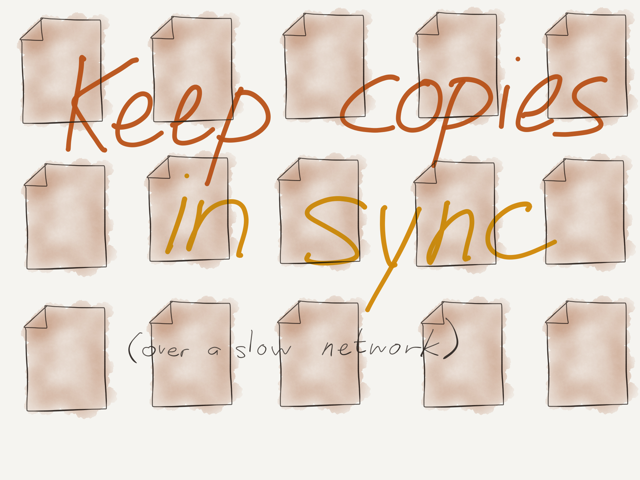 Keep copies
in sync
(over a slow network)